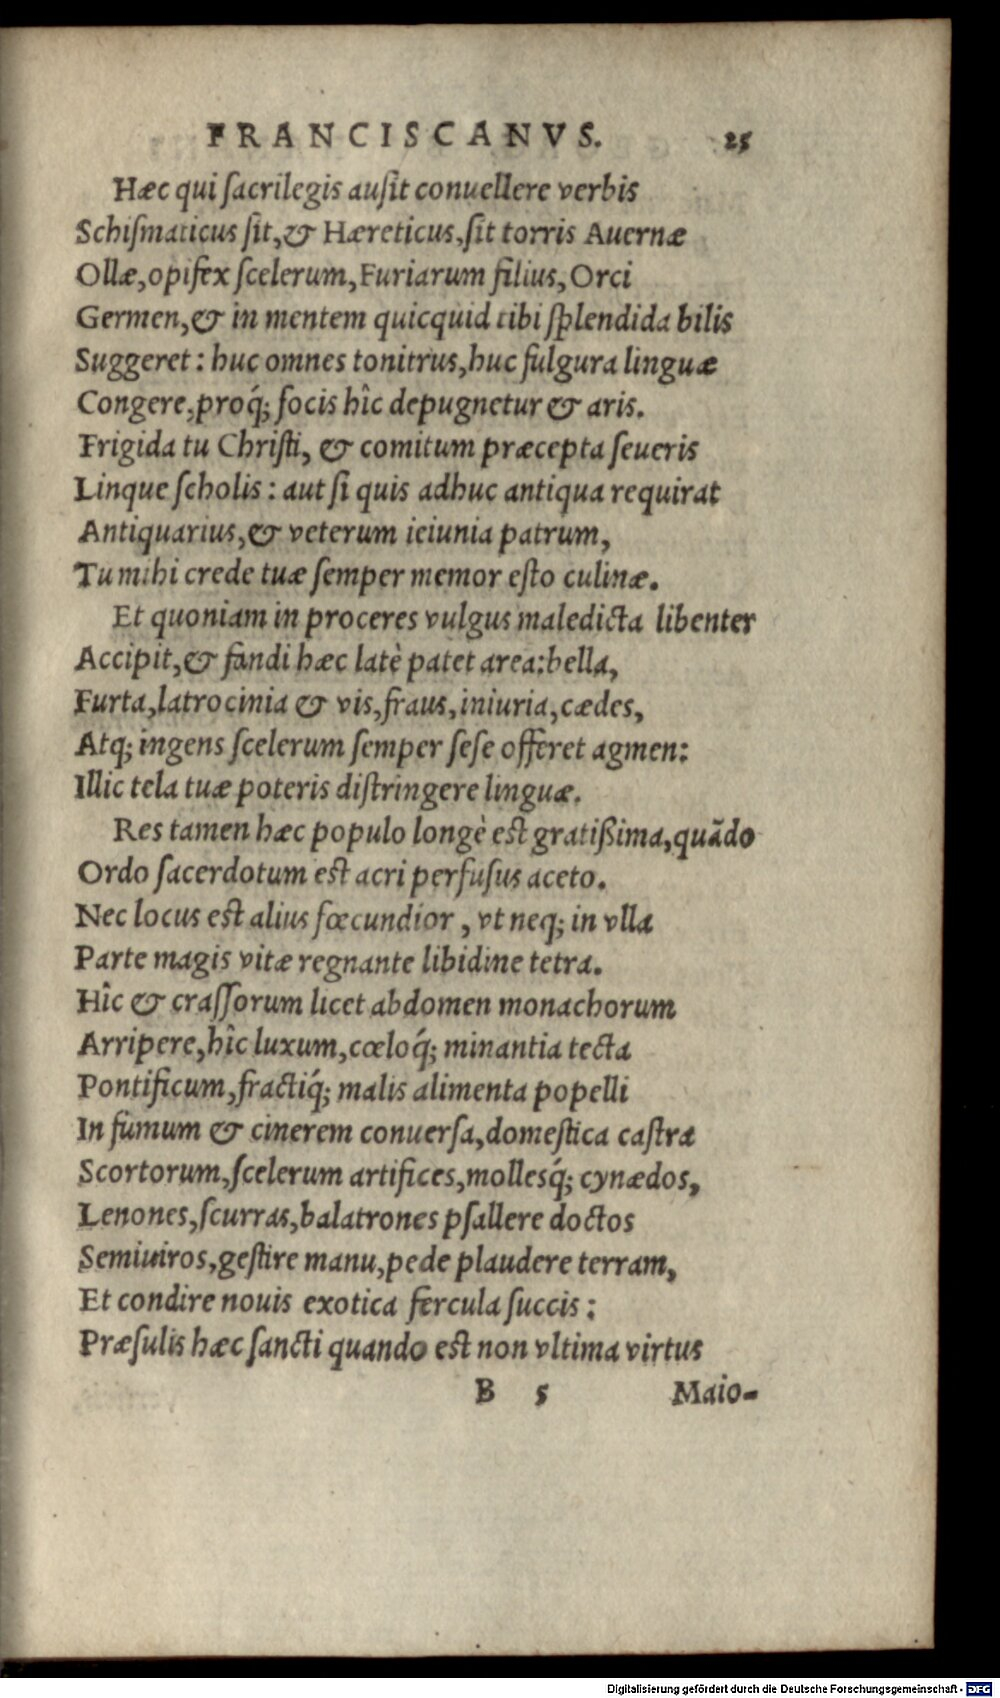 FRANCISCANVS. 25
Hæc qui ſacrilegis auſit conuellere verbis
Schiſmaticus ſit,& Hæreticus,ſit torris Auernæ
Ollæ,opifex ſcelerum,Furiarum filius,Orci
Germen,& in mentem quicquid tibi ſplendida bilis
Suggeret: huc omnes tonitrus,huc fulgura linguæ
Congere,proq́; focis hîc depugnetur & aris.
Frigida tu Chriſti, & comitum præcepta ſeueris
Linque ſcholis: aut ſi quis adhuc antiqua requirat
Antiquarius,& veterum ieiunia patrum,
Tu mihi crede tuæ ſemper memor eſto culinæ.
Et quoniam in proceres vulgus maledicta libenter
Accipit,& fandi hæc latè patet area:bella,
Furta,latrocinia & vis,fraus,iniuria,cædes,
Atq; ingens ſcelerum ſemper ſeſe offeret agmen:
Illic tela tuæ poteris diſtringere linguæ.
Res tamen hæc populo longè eſt gratißima,quãdo
Ordo ſacerdotum eſt acri perfuſus aceto.
Nec locus eſt alius fœcundior, vt neq; in vlla
Parte magis vitæ regnante libidine tetra.
Hîc & craſſorum licet abdomen monachorum
Arripere,hîc luxum,cœloq́; minantia tecta
Pontificum,fractiq́; malis alimenta popelli
In fumum & cinerem conuerſa,domeſtica caſtra
Scortorum,ſcelerum artifices,molleſq́; cynædos,
Lenones,ſcurras,balatrones pſallere doctos
Semiuiros,geſtire manu,pede plaudere terram,
Et condire nouis exotica fercula ſuccis:
Præſulis hæc ſancti quando eſt non vltima virtus
B 5 Maio-
Digitalisierung gefördert durch die Deutsche Forschungsgemeinschaft - DFG